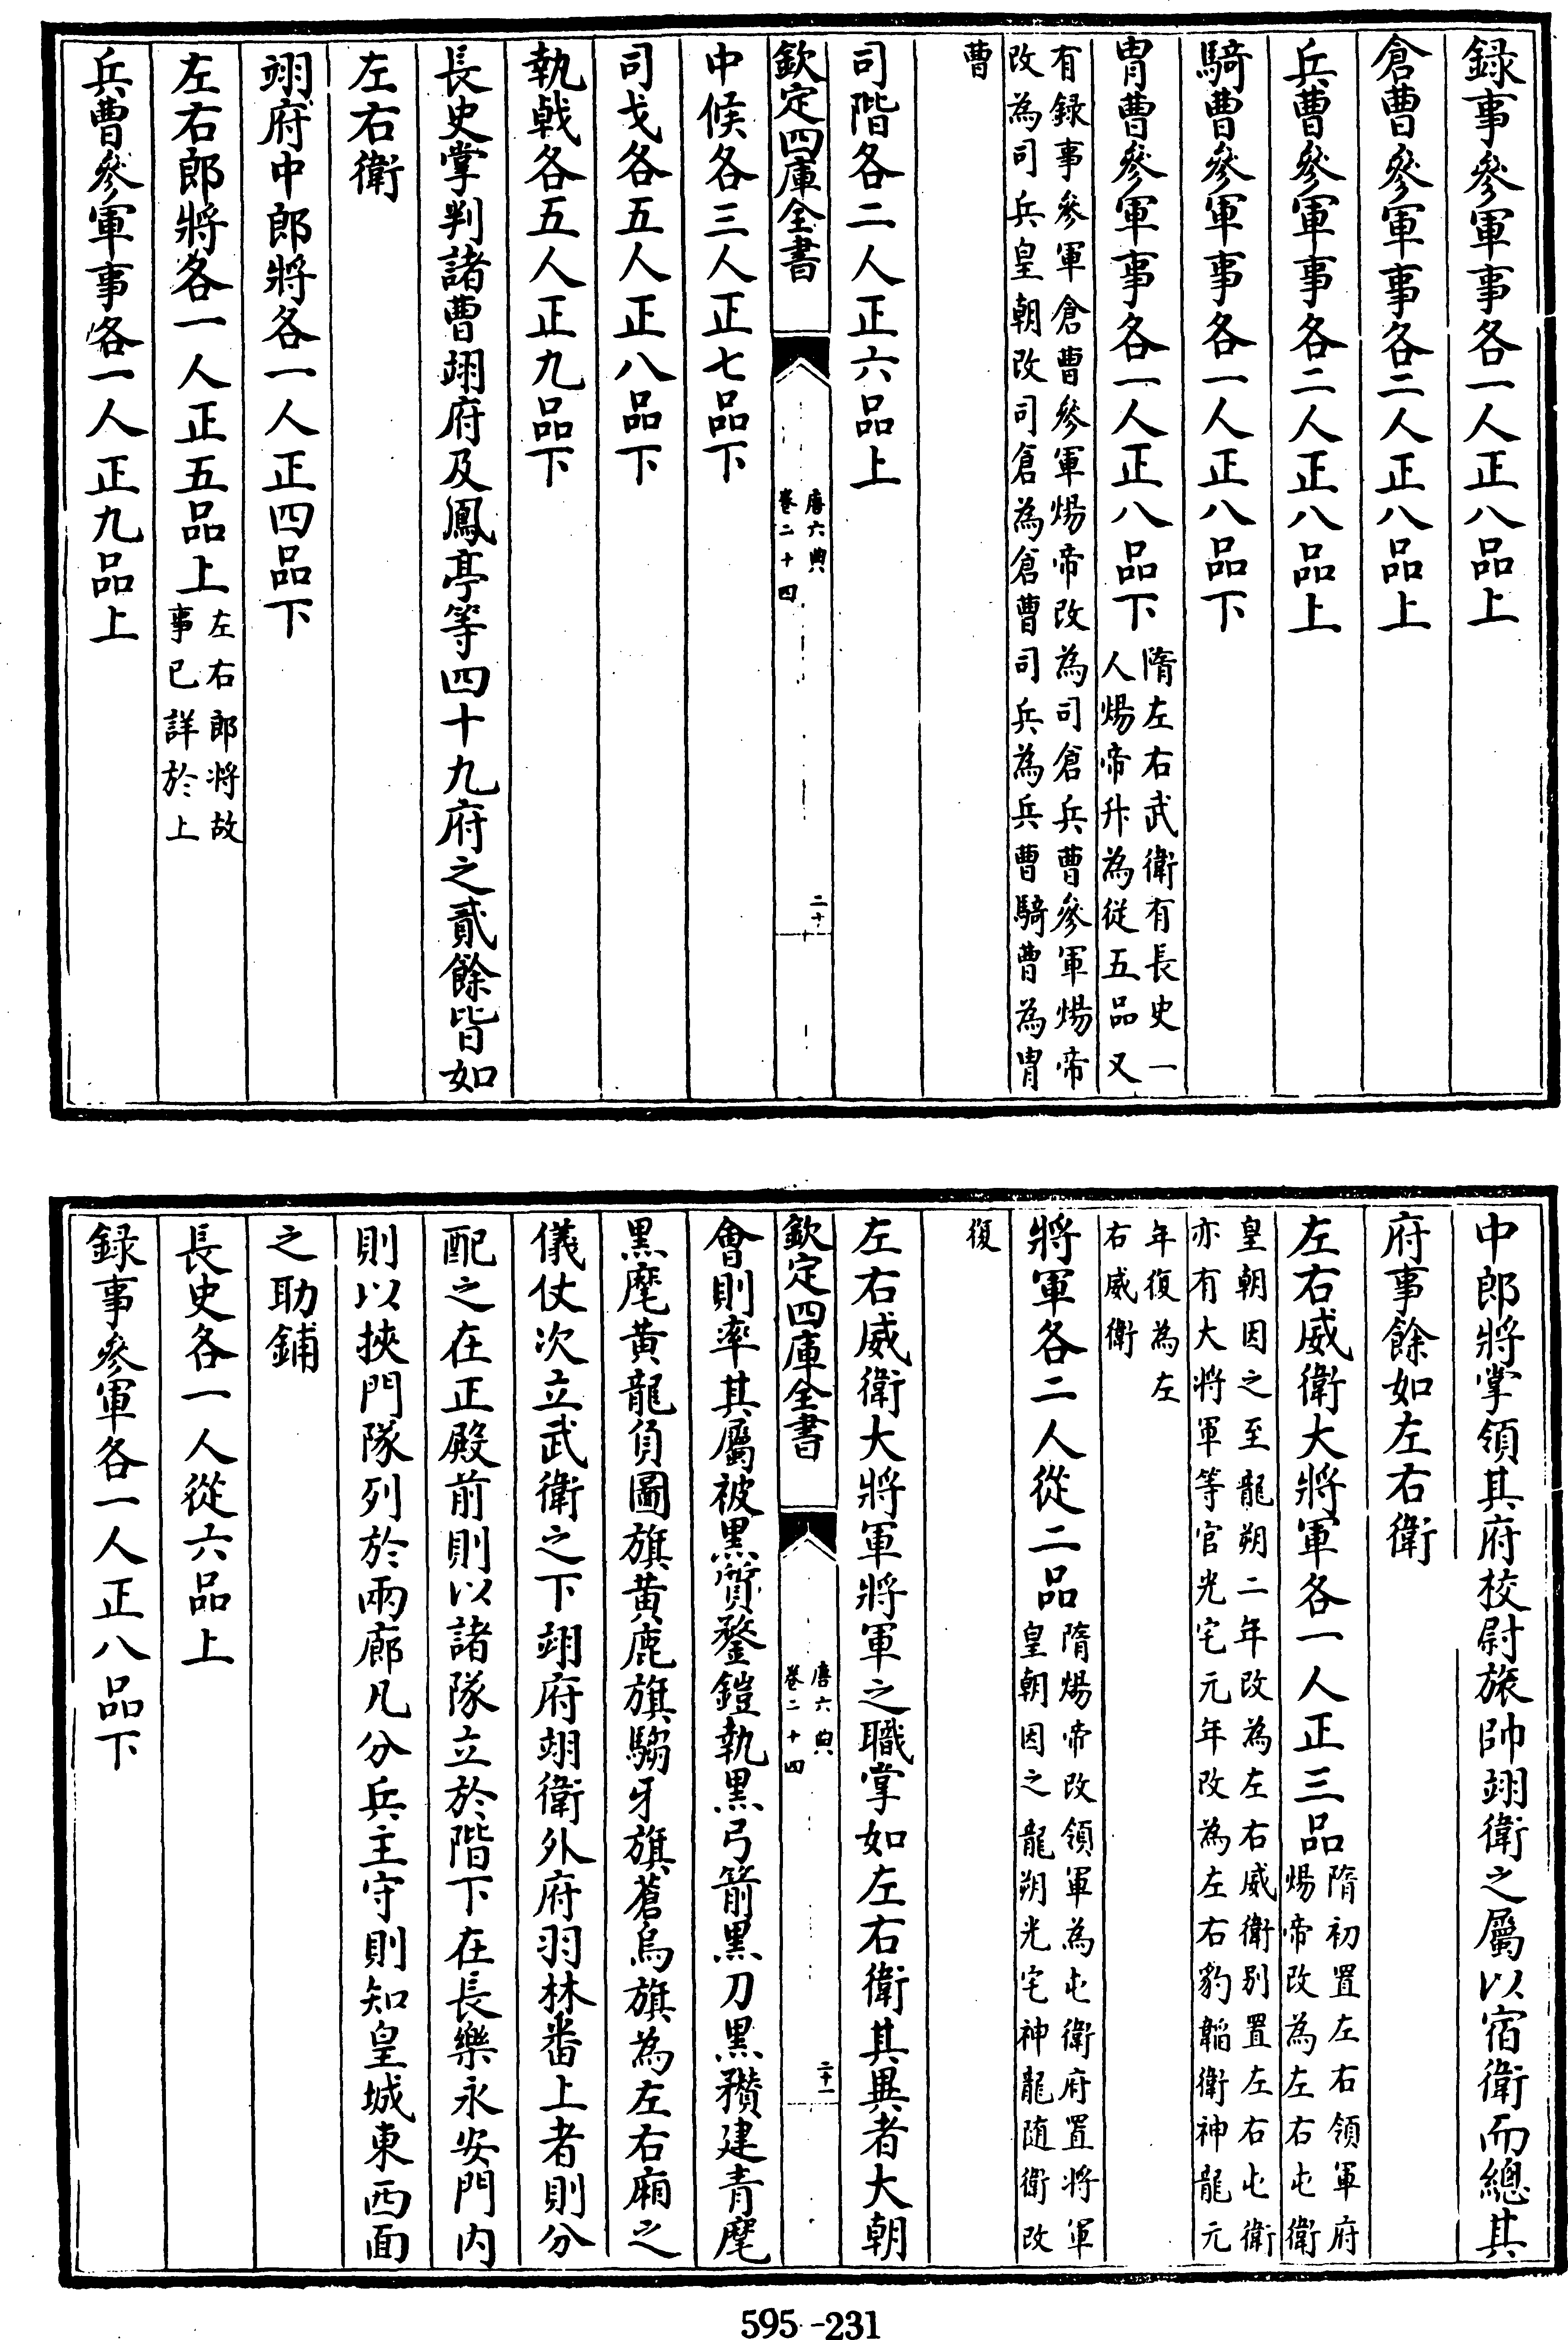 録事參軍事各一人正八品上
倉曹參軍事各二人正八品上
兵曹參軍事各二人正八品上
騎曹參軍事各一人正八品下
冑曹參軍事各一人正八品下隋左右武衛有長史一
人煬帝升為從五品又
有録事參軍倉曹參軍煬帝改為司倉兵曹參軍煬帝
改為司兵皇朝改司倉為倉曹司兵為兵曹騎曹為冑
曹
司階各二人正六品上
欽定四庫全書
唐六典
卷二十四
二十
中候各三人正七品下
司戈各五人正八品下
執戟各五人正九品下
長史掌判諸曹翊府及鳳亭等四十九府之貳餘皆如
左右衛
翊府中郎將各一人正四品下
左右郎將各一人正五品上左右郎將故
事已詳於上
兵曹參軍事各一人正九品上
中郎將掌領其府校尉旅帥翊衛之屬以宿衛而總其
府事餘如左右衛
左右威衛大將軍各一人正三品隋初置左右領軍府
煬帝改為左右屯衛
皇朝因之至龍朔二年改為左右威衛別置左右屯衛
亦有大將軍等官光宅元年改為左右豹韜衛神龍元
年復為左
右威衛
將軍各二人從三品隋煬帝改領軍為屯衛府置將軍
皇朝因之龍朔光宅神龍隨衛改
復
左右威衛大將軍將軍之職掌如左右衛其異者大朝
欽定四庫全書
唐六典
卷二十四
二十一
會則率其屬被黒質鍪鎧執黒弓箭黒刀黒穳建青麾
黒麾黄龍負圖旗黄鹿旗騶牙旗蒼烏旗為左右廂之
儀仗次立武衛之下翊府翊衛外府羽林番上者則分
配之在正殿前則以諸隊立於階下在長樂永安門内
則以挾門隊列於兩廊凡分兵主守則知皇城東西面
之助鋪
長史各一人從六品上
録事參軍各一人正八品下
595-231